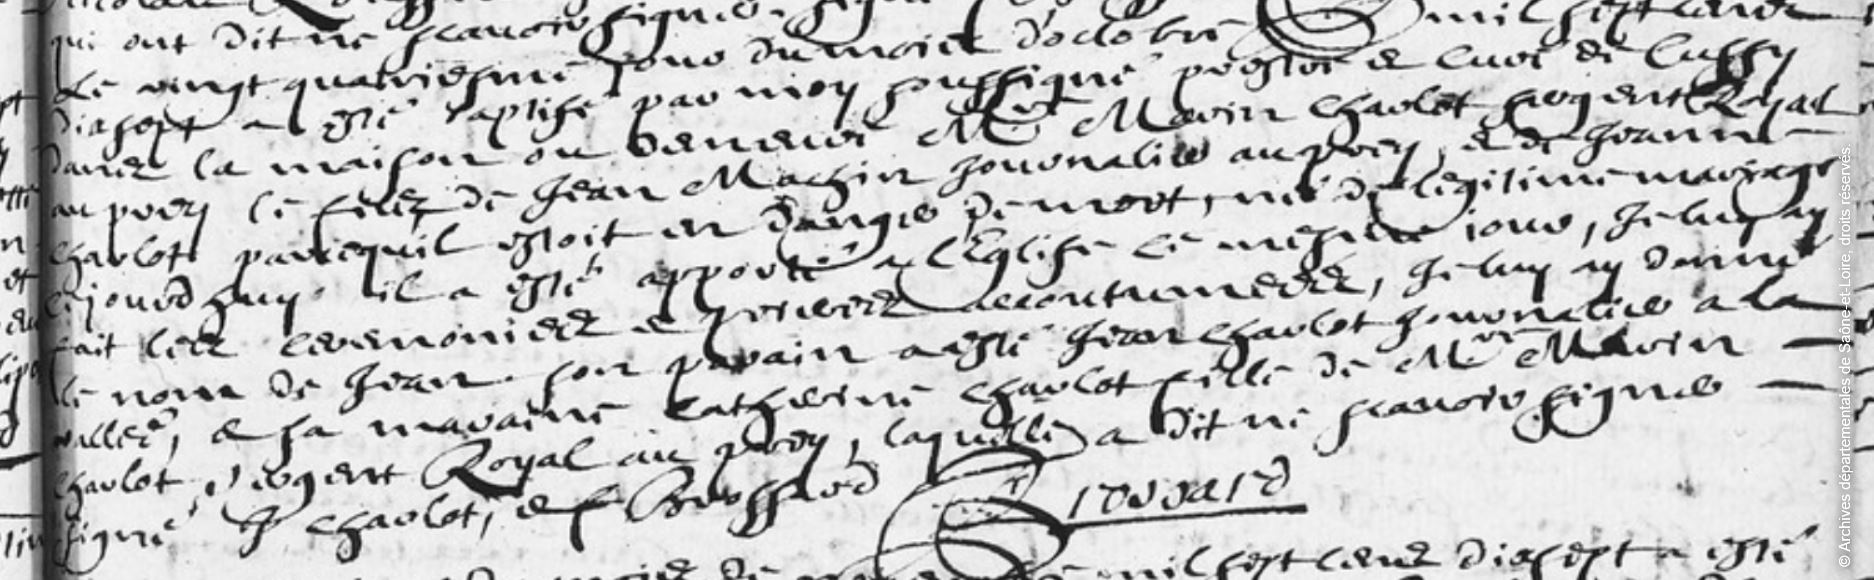 qui ont dit ne scavoir signer
Le vingt quatriesme jour du mois d'octobre mil sept cents
diasept a esté baptisé par moy soussigné prestre et curé de Cussy
dans la maison ou demeure Mre Marin Charlot sergent Royal
au pory le filz de Jean Machin journalier au pory, et de Jeanne
Charlot parcequil estoit en danger de mort, né de legitime mariage
cejourdhuy. il a esté apporté a l'Eglise le mesme jour, Je luy ay
fait les ceremonies et prieres accoutumées, Je luy ay donné
le nom de Jean. son parain a esté Jean Charlot journalier a la
vallee, et sa maraine Catherine Charlot fille de Mre Marin
Charlot, sergent Royal au pory, laquelle a dit ne scavoir signer
signé J Charlot, et f Brossard Girovard
mil sept cents diasept a esté
© Archives départementales de Saône-et-Loire, droits réservés.